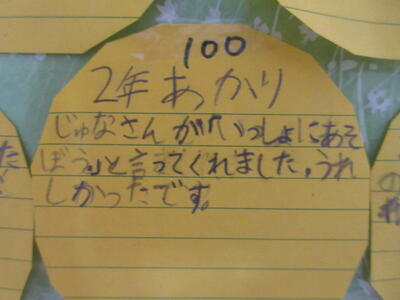 100
2年 あかり
じゅなさんが「いっしょにあそ
ぼう」と言ってくれました。うれ
しかったです。